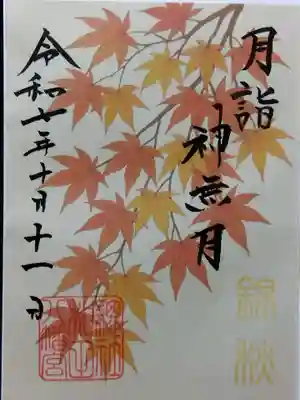 月詣
神無月
令和七年十月十一日
錦秋